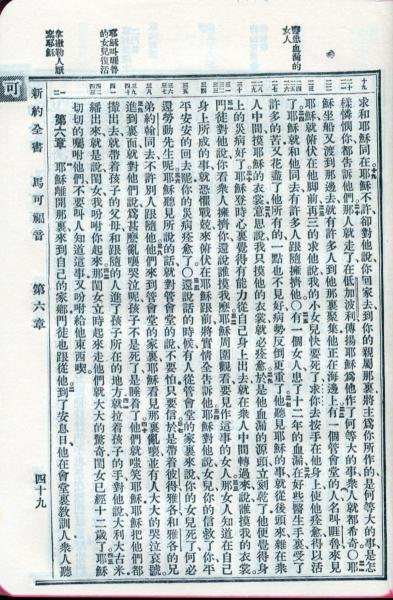 醫患血漏的
女人
耶穌叫睚魯
的女兒復活
拿撒勒人厭
棄耶穌
求和耶穌同在耶穌不許卻對他說你回家去到你的親屬那裏將主為你所作的是何等大的事是怎
樣憐憫你都告訴他們那人就走了在低加波利傳揚耶穌為他作了何等大的事衆人就都希奇○耶
穌坐船又渡到那邊去就有許多人到他那裏聚集他正在海邊上有一個管會堂的人名叫睚魯來見
耶穌就俯伏在他腳前再三的求他說我的小女兒快要死了求你去按手在他身上使他痊愈得以活
了耶穌就和他同去有許多人跟隨擁擠他○有一個女人患了十二年的血漏在好些醫生手裏受了
許多的苦又花盡了他所有的一點也不見好病勢反倒更重了他聽見耶穌的事就從後頭來雜在衆
人中間摸耶穌的衣裳意思說我只摸他的衣裳就必痊愈於是他血漏的源頭立刻乾了他便覺得身
上的災病好了耶穌登時心裏覺得有能力從自己身上出去就在衆人中間轉過來說誰摸我的衣裳
門徒對他說你看衆人擁擠你還說誰摸我麼耶穌周圍觀看要見作這事的女人那女人知道在自己
身上所成的事就恐懼戰兢來俯伏在耶穌跟前將實情全告訴他耶穌對他說女兒你的信救了你平
平安安的回去罷你的災病痊愈了○還說話的時候有人從管會堂的家裏來說你的女兒死了何必
還勞動先生呢耶穌聽見所說的話就對管會堂的說不要怕只要信於是帶着彼得雅各和雅各的兄
弟約翰同去不許別人跟隨他他們來到管會堂的家裏耶穌看見那裏亂嚷並有人大大的哭泣哀號
進到裏面就對他們說為甚麼亂嚷哭泣呢孩子不是死了是睡着了他們就嗤笑耶穌耶穌把他們都
攆出去就帶着孩子的父母和跟隨的人進了孩子所在的地方就拉着孩子的手對他說大利大古米
繙出來就是說閨女我吩咐你起來那閨女立時起來走他們就大大的驚奇閨女已經十二歲了耶穌
切切的囑咐他們不要叫人知道這事又吩咐給他東西喫
第六章 耶穌離開那裏來到自己的家鄉門徒也跟從他到了安息日他在會堂裏教訓人衆人聽
可
新約全書 馬可福音 第六章 四十九